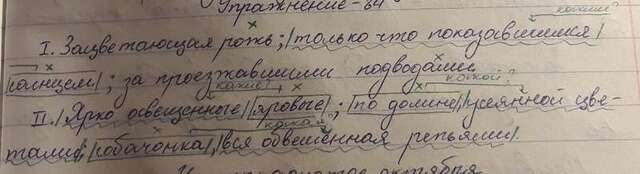 Упражнение-84
каким?
I. Зацветающая рожь; только что показавшимся
солнцем; за проезжавшими подводами
какие? какой?
II. Ярко освещенные яровые; по долине, усеянной цве-
какая?
тами; собачонка, вся обвешенная репьями.
октября